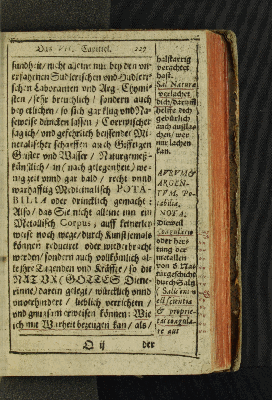 Das Erst Capittel. 227
sundheit / nicht alleine nur bey den un-
erfahrnen Sudlerischen und Hudleri-
schen Laboranten und Arg-Chymi-
sten / sehr breuchlich / sondern auch
bey etlichen / so sich gar klug und Na-
seweise düncken lassen / Corrivischer
sag ich / und gefehrlich beissender Mi-
neralischer scharffen auch Gifftigen
Geister und Wasser / Naturgemeß-
künstlich / an (nach gelegenheit) we-
nig zeit unnd gar bald / recht unnd
warhafftig Medicinalisch POTA-
BILIA oder drincklich gemacht:
Also / das Sie nicht alleine nur ein
Metalisch Corpus, auff keinerley
weise noch wege / durch Kunst jemals
können reduciret oder wiederbracht
werden / sondern auch vollkömlich al-
le ihre Tugenden und Kräffte / so die
NATUR (GOTTES Diene-
rinne) darein gelegt / würcklich unnd
unverhindert / lieblich verrichten /
und gnugsam erweisen können: Wie
ich mit Warheit bezeugen kan / als /
O ij der
halsstarrig
verachtet
hast.
Sal Naturæ
verlachet
dich / darauff
AVRVM &
ARGEN-
TVM, Po-
tabilia,
NOTA.
Dieweil
coagulatio
oder her-
tung der
metallen
geschicht
durch Saltz